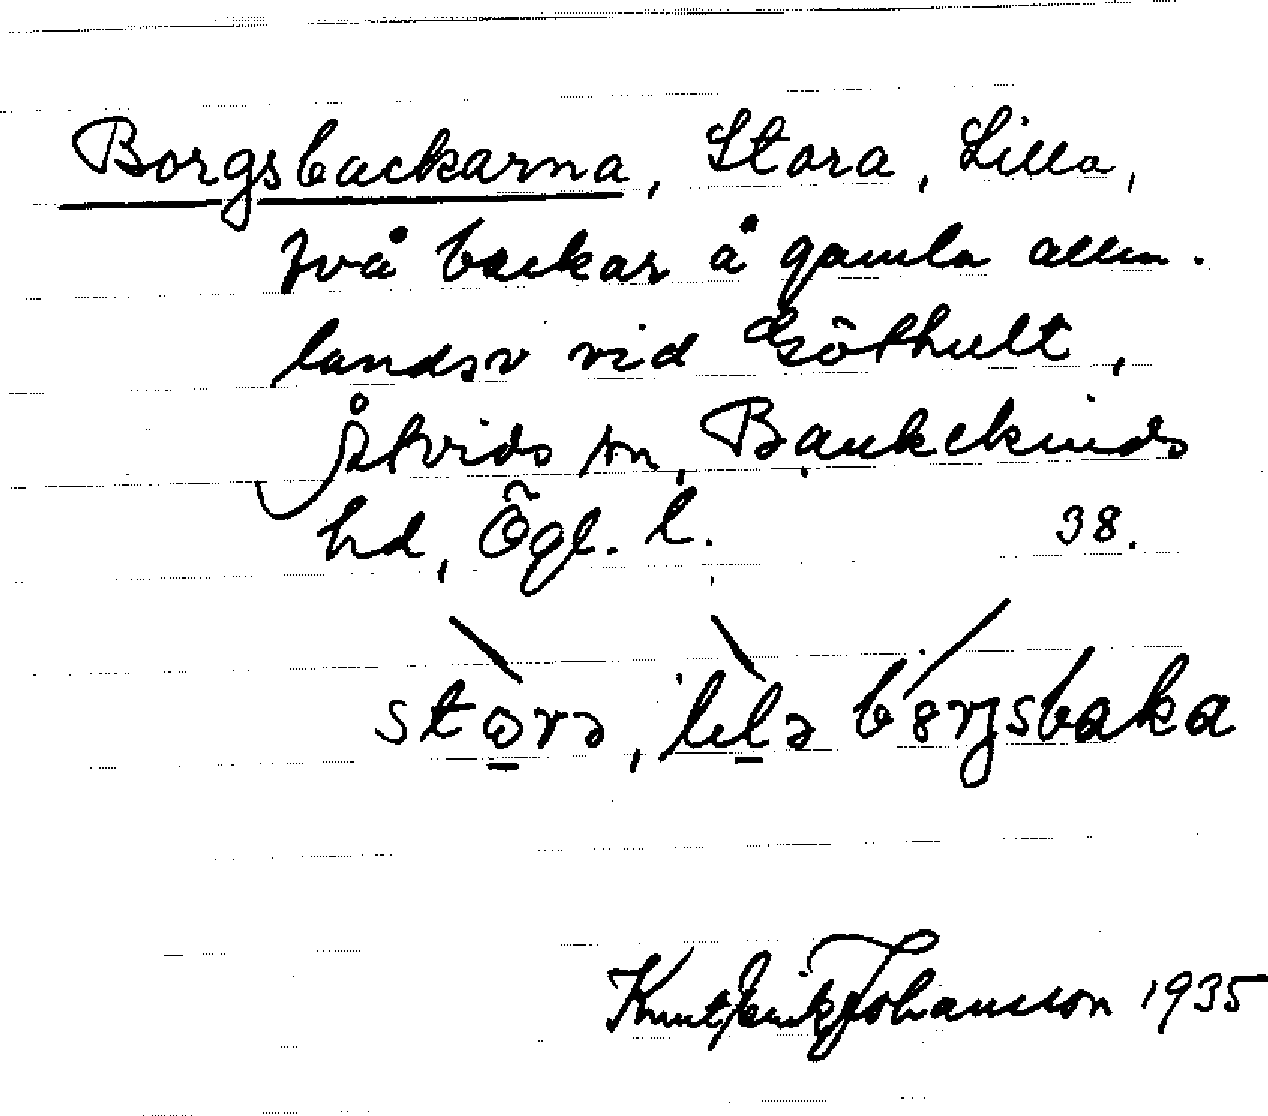 Borgsbackarna, Stora, Lilla,
två backar å gamla allm.
landsv vid Göthult,
Åtvids sn, Bankekinds
hd, Ögl. l. 38.
storə, lɩlə bərjsbaka
Knut Erik Johansson 1935